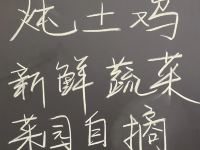 炖土鸡
新鲜蔬菜
菜园自摘